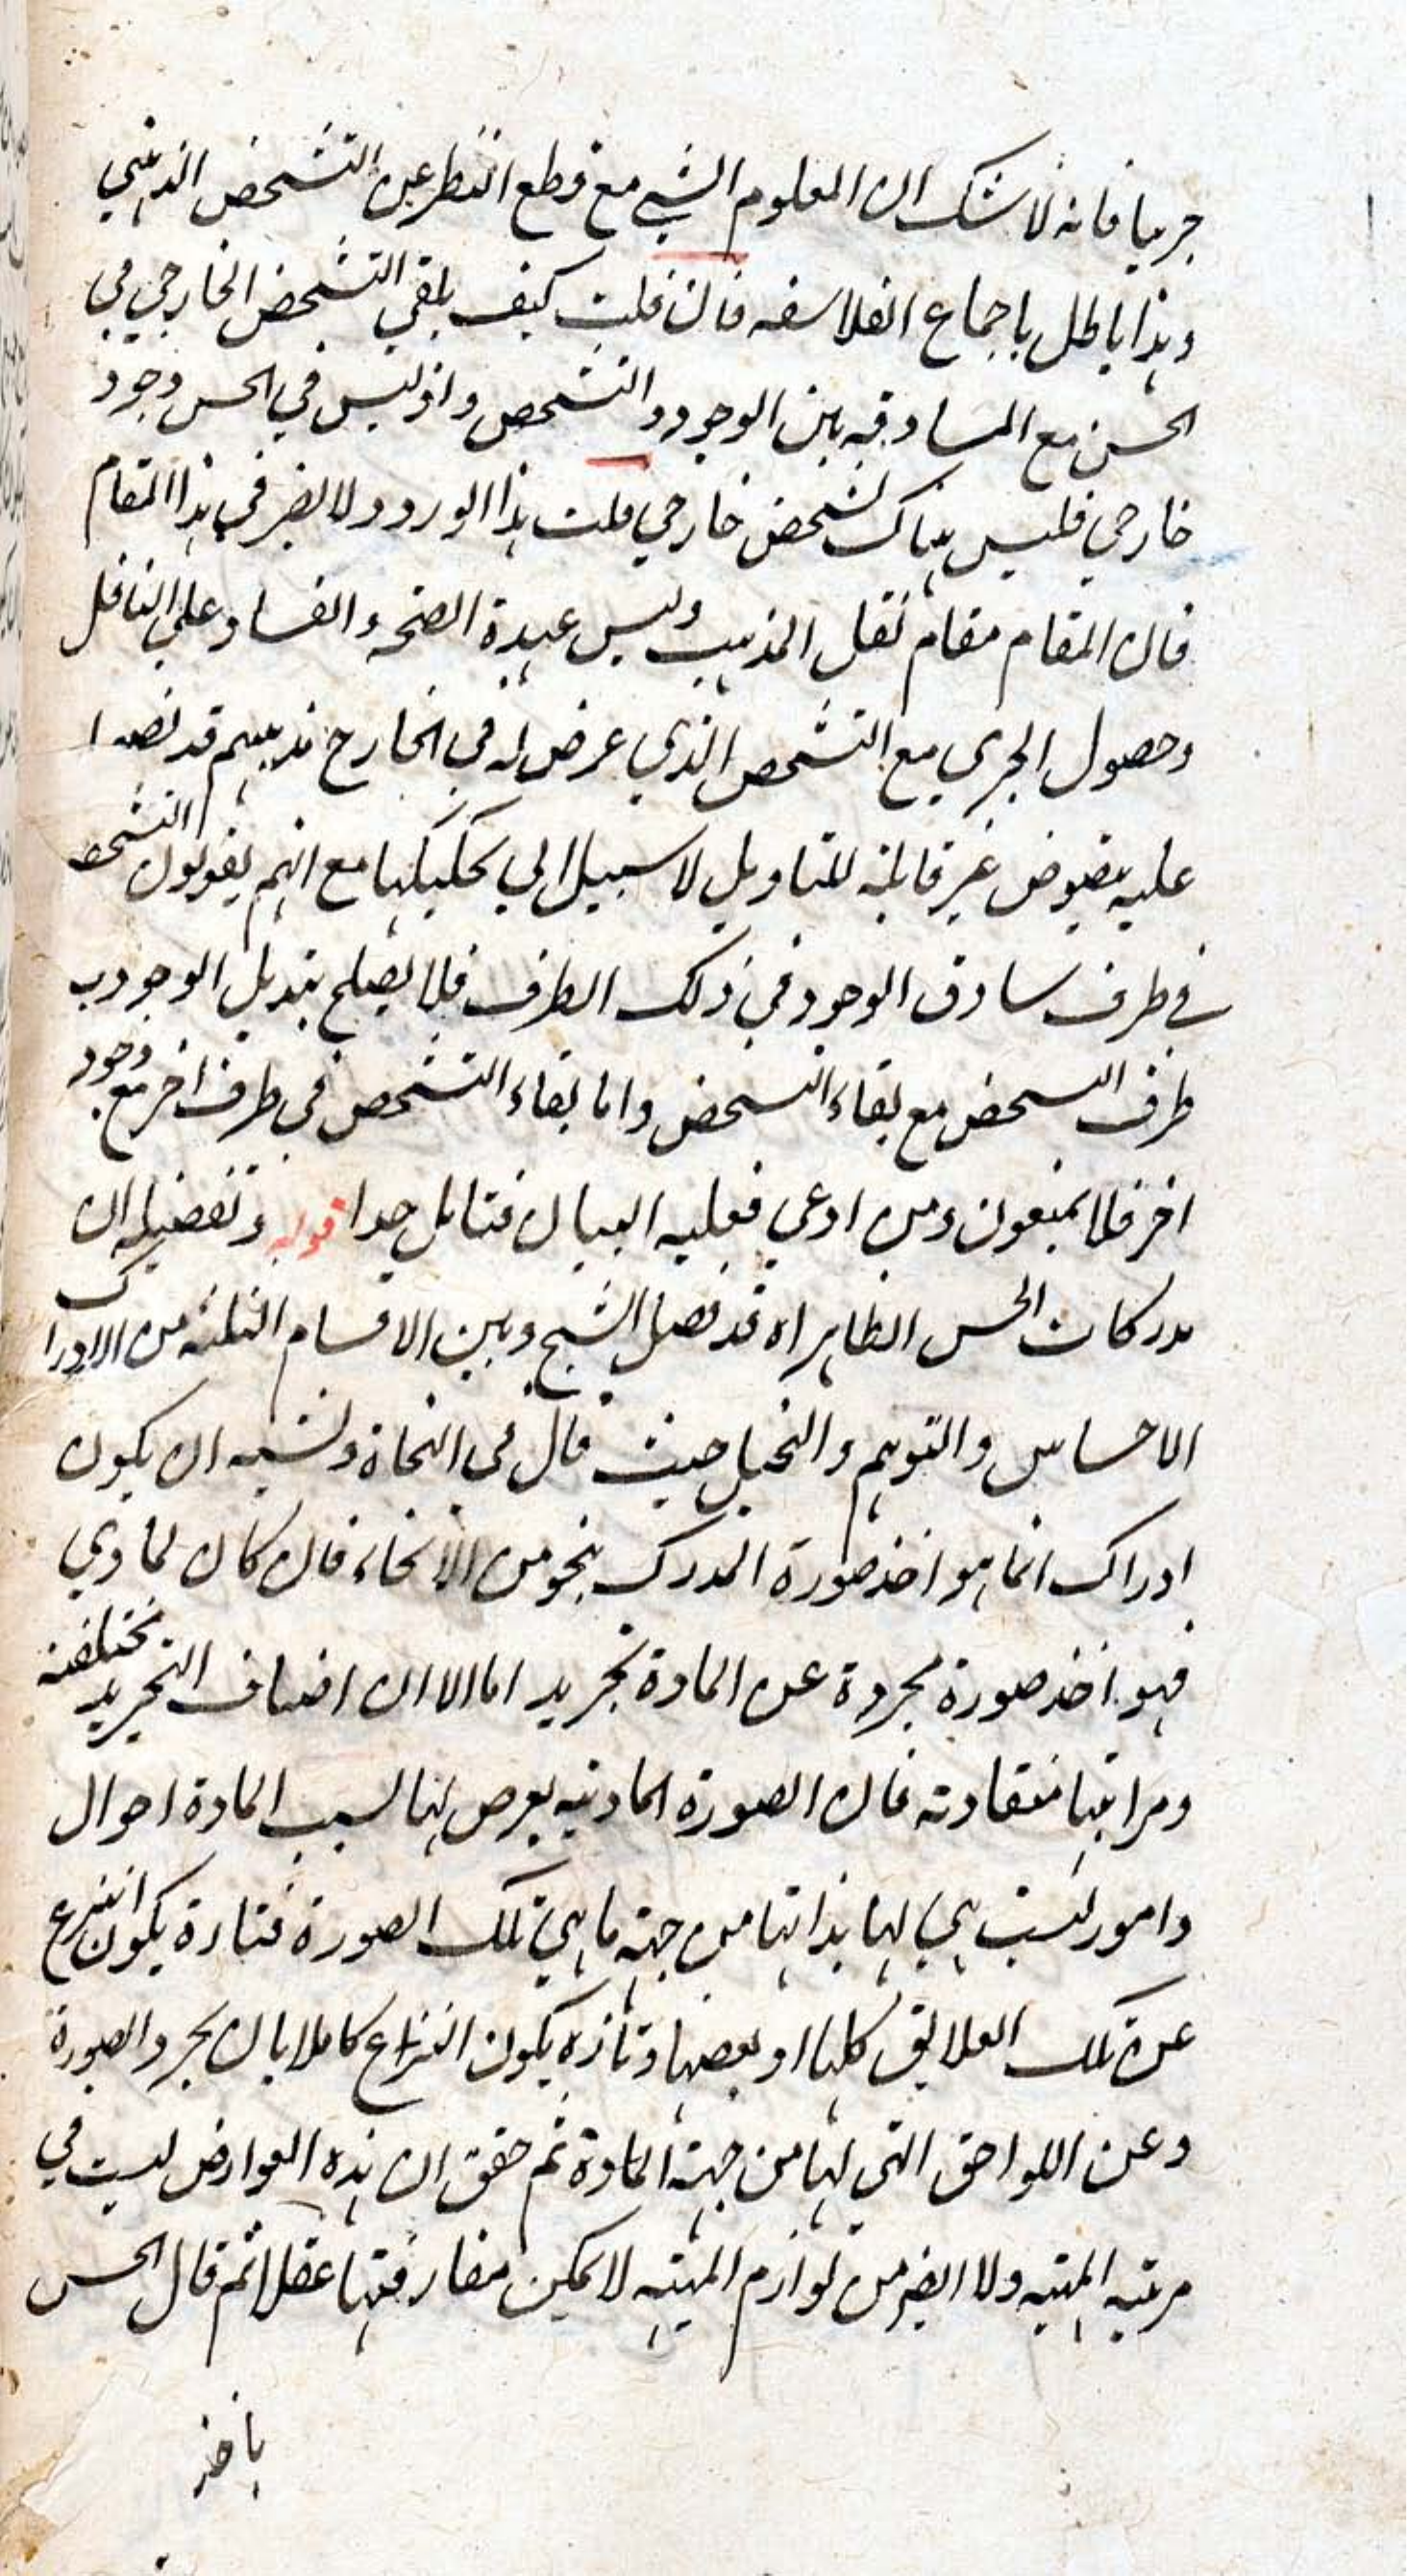 جزئيا فانه لا شك ان المعلوم الشي مع قطع النظر عن التشخص الذهني
وهذا باطل باجماع الفلاسفه فان قلت كيف يلقي التشخص الخارجي في
الحس مع المساوقه بين الوجود والتشخص واذ ليس في الحس وجود
خارجي فليس هناك تشخص خارجي قلت هذا الورود لا يضر في هذا المقام
فان المقام مقام نقل المذهب وليس عهدة الصحه والفساد على الناقل
وحصول الجزي مع التشخص الذي عرض له في الخارج مذهبهم قد نصوا
عليه بنصوص غير قابلة للتاويل لا سبيل الي تحكيكها مع انهم يقولون التشخص
في ظرف ساوق الوجود في ذلك الظرف فلا يصلح تبديل الوجود ب
ظرف التشخص مع بقاء التشخص واما بقاء التشخص في ظرف اخر مع وجود
اخر فلا يمنعون ومن ادعي فعليه البيان فتامل جدا قوله وتفصيله ان
مدركات الحس الظاهر اه قد فصل الشيخ وبين الاقسام الثلثه من الادراك
الاحساس والتوهم والتخيل حيث قال في النجاة ويشبه ان يكون
ادراك انما هو اخذ صورة المدرك بنحو من الانحاء فان كان لمادي
فهو اخذ صورة مجردة عن المادة تجريد اما الا ان اصناف التجريد مختلفة
ومراتبها متفاوته فان الصورة المادية يعرض لها بسبب المادة احوال
وامور ليست هي لها بذاتها من جهة ما هي تلك الصورة فتارة يكون النزع
عن تلك العلايق كلها او بعضها وتارة يكون النزع كاملا بان يجرد الصورة
وعن اللواحق التي لها من جهة المادة ثم حقق ان هذه العوارض ليست في
مرتبه المهيه ولا ايضر من لوازم المهيه لا يمكن مفارقتها عقلا ثم قال الحس
ياخذ